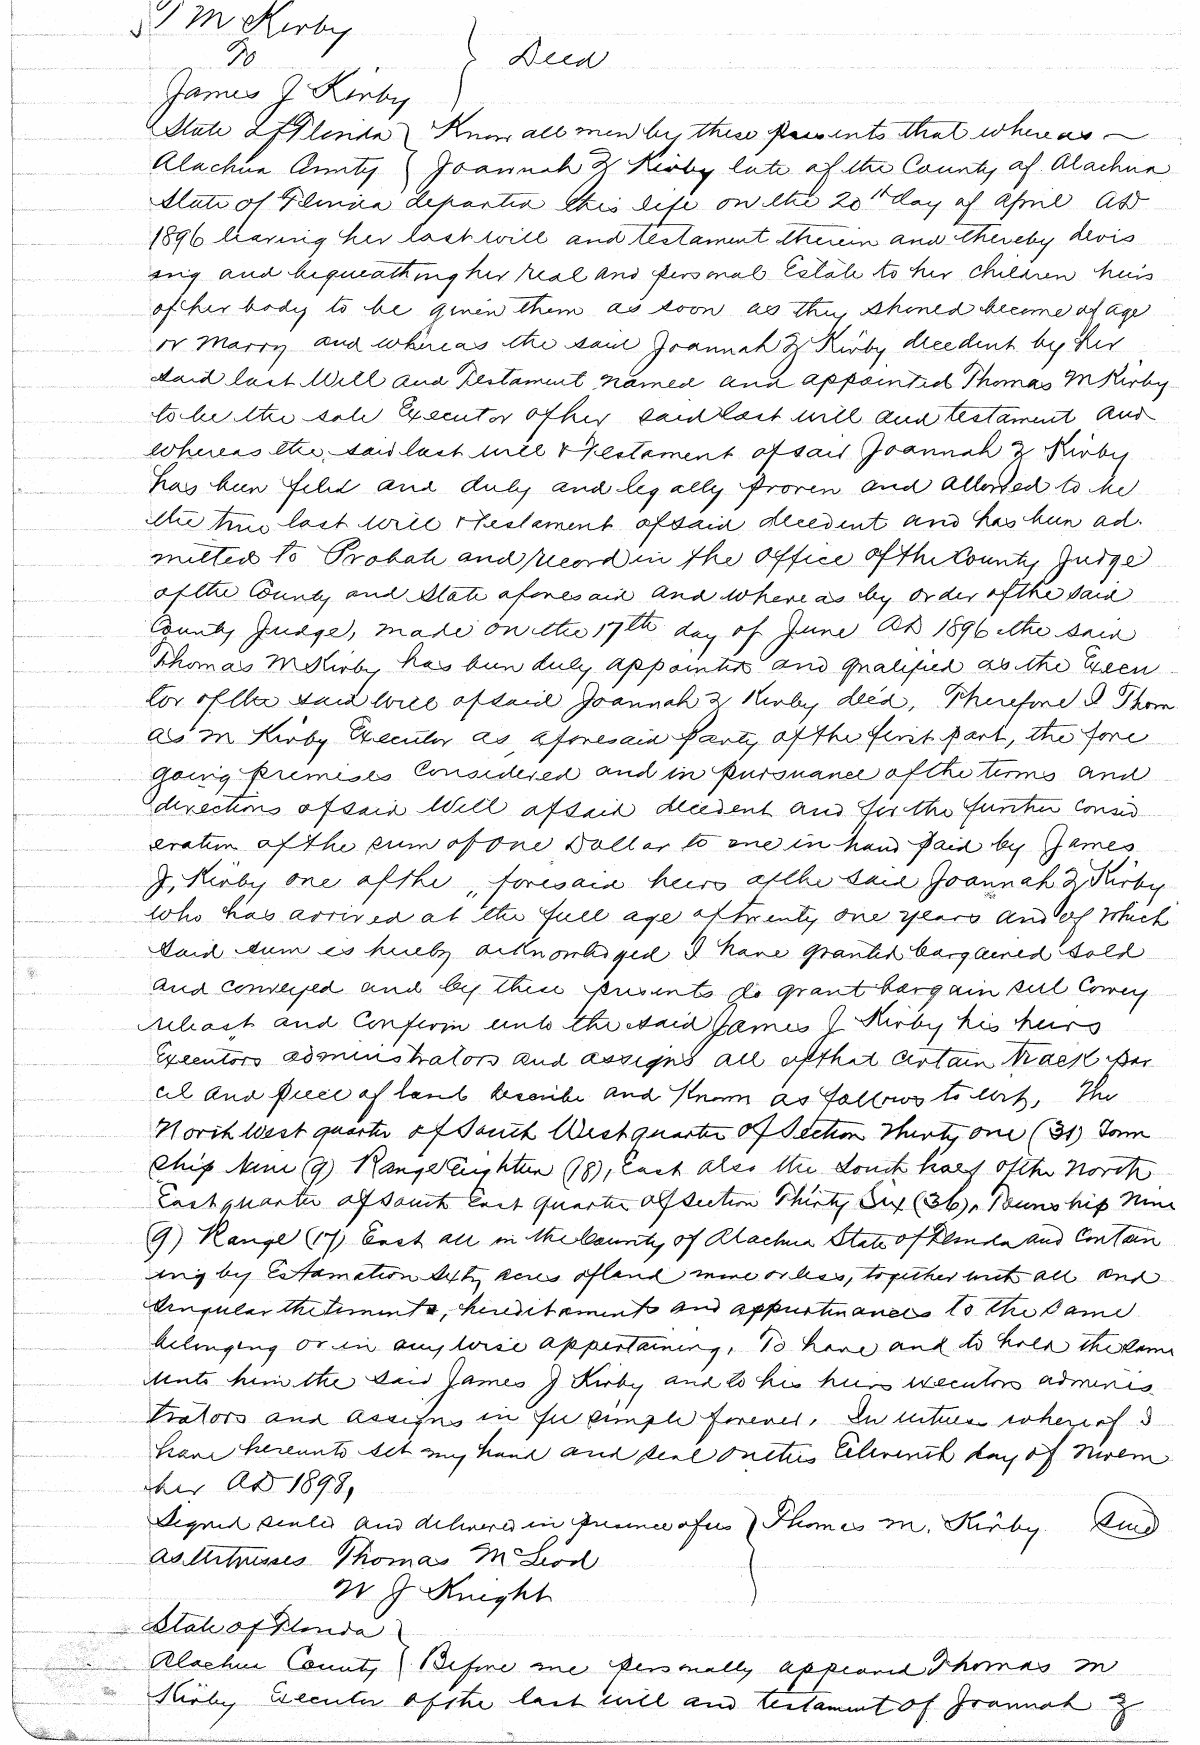 T M Kirby
To } Deed
James J Kirby
State of Florida } Know all men by these presents that whereas —
Alachua County } Joannah Z Kirby late of the County of Alachua
State of Florida departed this life on the 20th day of April AD
1896 leaving her last will and testament therein and thereby devis
ing and bequeathing her real and personal Estate to her children heirs
of her body to be given them as soon as they should become of age
or Marry and whereas the said Joannah Z Kirby decedent by her
said last Will and Testament named and appointed Thomas M Kirby
to be the sole Executor of her said last will and testament and
whereas the said last will & Testament of said Joannah Z Kirby
has been filed and duly and legally proven and allowed to be
the true last will & Testament of said decedent and has been ad-
mitted to Probate and record in the office of the County Judge
of the County and State aforesaid and whereas by order of the said
County Judge, made on the 17th day of June AD 1896 the said
Thomas M Kirby has been duly appointed and qualified as the Execu
tor of the said will of said Joannah Z Kirby decd, Therefore I Thom
as M Kirby Executor as aforesaid party of the first part, the fore
going premises Considered and in pursuance of the terms and
directions of said Will of said decedent and for the further consid
eration of the sum of one Dollar to me in hand paid by James
J. Kirby one of the " foresaid heirs of the said Joannah Z Kirby
who has arrived at the full age of twenty one years and of which
said sum is hereby acknowledged I have granted bargained sold
and conveyed and by these presents do grant bargain sell Convey
release and Confirm unto the said James J Kirby his heirs
Executors administrators and assigns all of that certain track par
cel and piece of land describe and Known as follows to wit, The
North West quarter of South West quarter of Section Thirty one (31) Town
ship Nine (9) Range Eighteen (18), East also the South half of the North
East quarter of South East quarter of Section Thirty Six (36), Township Nine
(9) Range (17) East all in the County of Alachua State of Florida and Contain
ing by Estamation Sixty acres of land more or less, together with all and
singular the tements, hereditaments and appurtinances to the same
belonging or in anywise appertaining, To have and to hold the same
unto him the said James J Kirby and to his heirs executors adminis
trators and assigns in fee simple forever. In witness whereof I
have hereunto set my hand and seal on this Eleventh day of Novem
ber AD 1898,
Signed sealed and delivered in presence of us } Thomas M. Kirby Seal
as Witnesses Thomas McLeod
W J Knight
State of Florida }
Alachua County } Before me personally appeared Thomas M
Kirby Executor of the last will and testament of Joannah Z